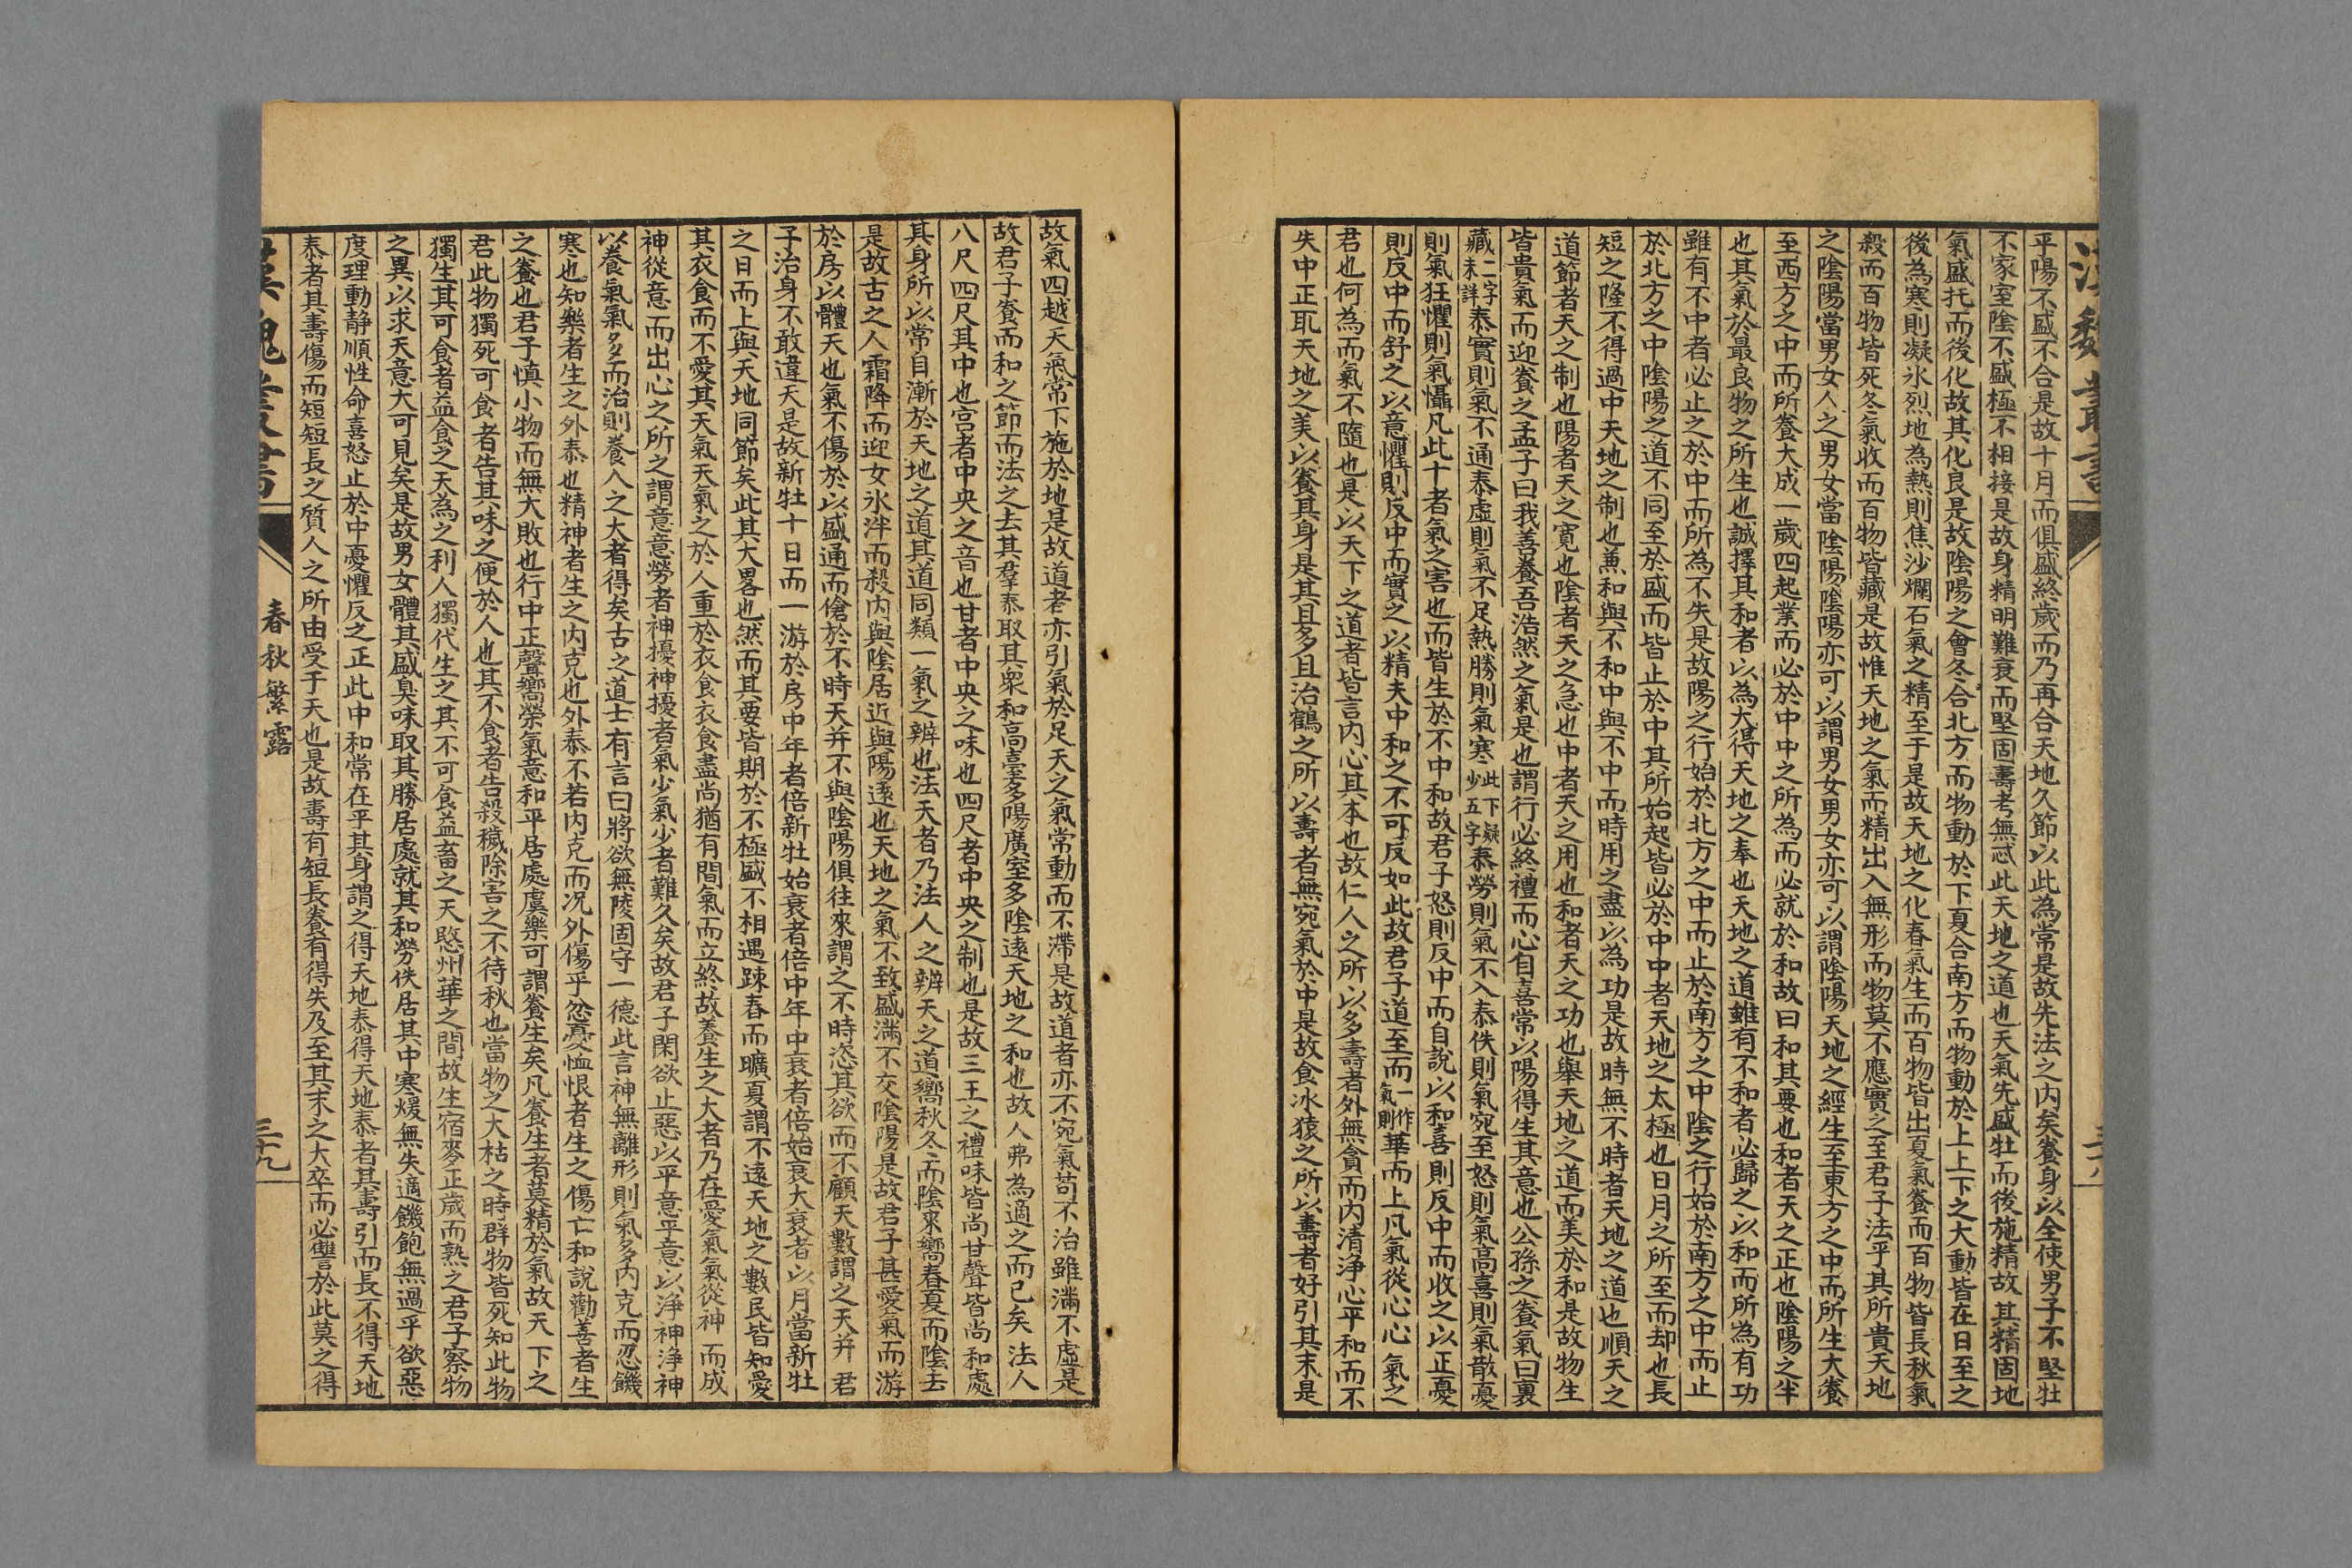 漢魏叢書
三十八
平陽不盛不合是故十月而俱盛終歲而乃再合天地久節以此為常是故先法之内矣養身以全使男子不堅牡
不家室陰不盛極不相接是故身精明難衰而堅固壽考無忒此天地之道也天氣先盛牡而後施精故其精固地
氣盛牝而後化故其化良是故陰陽之會冬合北方而物動於下夏合南方而物動於上上下之大動皆在日至之
後為寒則凝氷烈地為熱則焦沙爛石氣之精至于是故天地之化春氣生而百物皆出夏氣養而百物皆長秋氣
殺而百物皆死冬氣收而百物皆藏是故惟天地之氣而精出入無形而物莫不應實之至君子法乎其所貴天地
之陰陽當男女人之男女當陰陽陰陽亦可以謂男女男女亦可以謂陰陽天地之經生至東方之中而所生大養
至西方之中而所養大成一歲四起業而必於中中之所為而必就於和故曰和其要也和者天之正也陰陽之平
也其氣於最良物之所生也誠擇其和者以為大得天地之奉也天地之道雖有不和者必歸之以和而所為有功
雖有不中者必止之於中而所為不失是故陽之行始於北方之中而止於南方之中陰之行始於南方之中而止
於北方之中陰陽之道不同至於盛而皆止於中其所始起皆必於中中者天地之太極也日月之所至而却也長
短之隆不得過中天地之制也兼和與不和中與不中而時用之盡以為功是故時無不時者天地之道也順天之
道節者天之制也陽者天之寛也陰者天之急也中者天之用也和者天之功也舉天地之道而美於和是故物生
皆貴氣而迎養之孟子曰我善養吾浩然之氣是也謂行必終禮而心自喜常以陽得生其意也公孫之養氣曰裏
藏二字未詳泰實則氣不通泰虛則氣不足熱勝則氣寒此下疑少五字泰勞則氣不入泰佚則氣宛至怒則氣高喜則氣散憂
則氣狂懼則氣懾凡此十者氣之害也而皆生於不中和故君子怒則反中而自說以和喜則反中而收之以正憂
則反中而舒之以意懼則反中而實之以精夫中和之不可反如此故君子道至而一作氣則華而上凡氣從心心氣之
君也何為而氣不隨也是以天下之道者皆言内心其本也故仁人之所以多壽者外無貪而内清浄心平和而不
失中正取天地之美以養其身是其且多且治鶴之所以壽者無宛氣於中是故食冰猿之所以壽者好引其末是
故氣四越天氣常下施於地是故道者亦引氣於足天之氣常動而不滯是故道者亦不宛氣苟不治雖滿不虛是
故君子養而和之節而法之去其羣泰取其衆和高臺多陽廣室多陰遠天地之和也故人弗為適之而已矣法人
八尺四尺其中也宫者中央之音也甘者中央之味也四尺者中央之制也是故三王之禮味皆尚甘聲皆尚和處
其身所以常自漸於天地之道其道同類一氣之辨也法天者乃法人之辨天之道嚮秋冬而陰來嚮春夏而陰去
是故古之人霜降而迎女氷泮而殺内與陰居近與陽逺也天地之氣不致盛滿不交陰陽是故君子甚愛氣而游
於房以體天也氣不傷於以盛通而傖於不時天并不與陰陽俱往來謂之不時恣其欲而不顧天數謂之天并君
子治身不敢違天是故新牡十日而一游於房中年者倍新牡始衰者倍中年中衰者倍始衰大衰者以月當新牡
之日而上與天地同節矣此其大畧也然而其要皆期於不極盛不相遇踈春而曠夏謂不遠天地之數民皆知愛
其衣食而不愛其天氣天氣之於人重於衣食衣食盡尚猶有間氣而立終故養生之大者乃在愛氣氣從神而成
神從意而出心之所之謂意意勞者神擾神擾者氣少氣少者難久矣故君子閑欲止惡以平意平意以浄神浄神
以養氣氣多而治則養人之大者得矣古之道士有言曰將欲無陵固守一德此言神無離形則氣多内克而忍饑
寒也知樂者生之外泰也精神者生之内克也外泰不若内克而况外傷乎忿憂恤恨者生之傷亡和說勸善者生
之養也君子慎小物而無大敗也行中正聲嚮榮氣意和平居處虞樂可謂養生矣凡養生者莫精於氣故天下之
君此物獨死可食者告其味之便於人也其不食者告殺穢除害之不待秋也當物之大枯之時群物皆死知此物
獨生其可食者益食之天為之利人獨代生之其不可食益畜之天愍州華之間故生宿麥正歲而熟之君子察物
之異以求天意大可見矣是故男女體其盛臭味取其勝居處就其和勞佚居其中寒煖無失適饑飽無過平欲惡
度理動静順性命喜怒止於中憂懼反之正此中和常在乎其身謂之得天地泰得天地泰者其壽引而長不得天地
泰者其壽傷而短短長之質人之所由受于天也是故壽有短長養有得失及至其末之大卒而必讐於此莫之得
漢魏叢書
春秋繁露
三十九